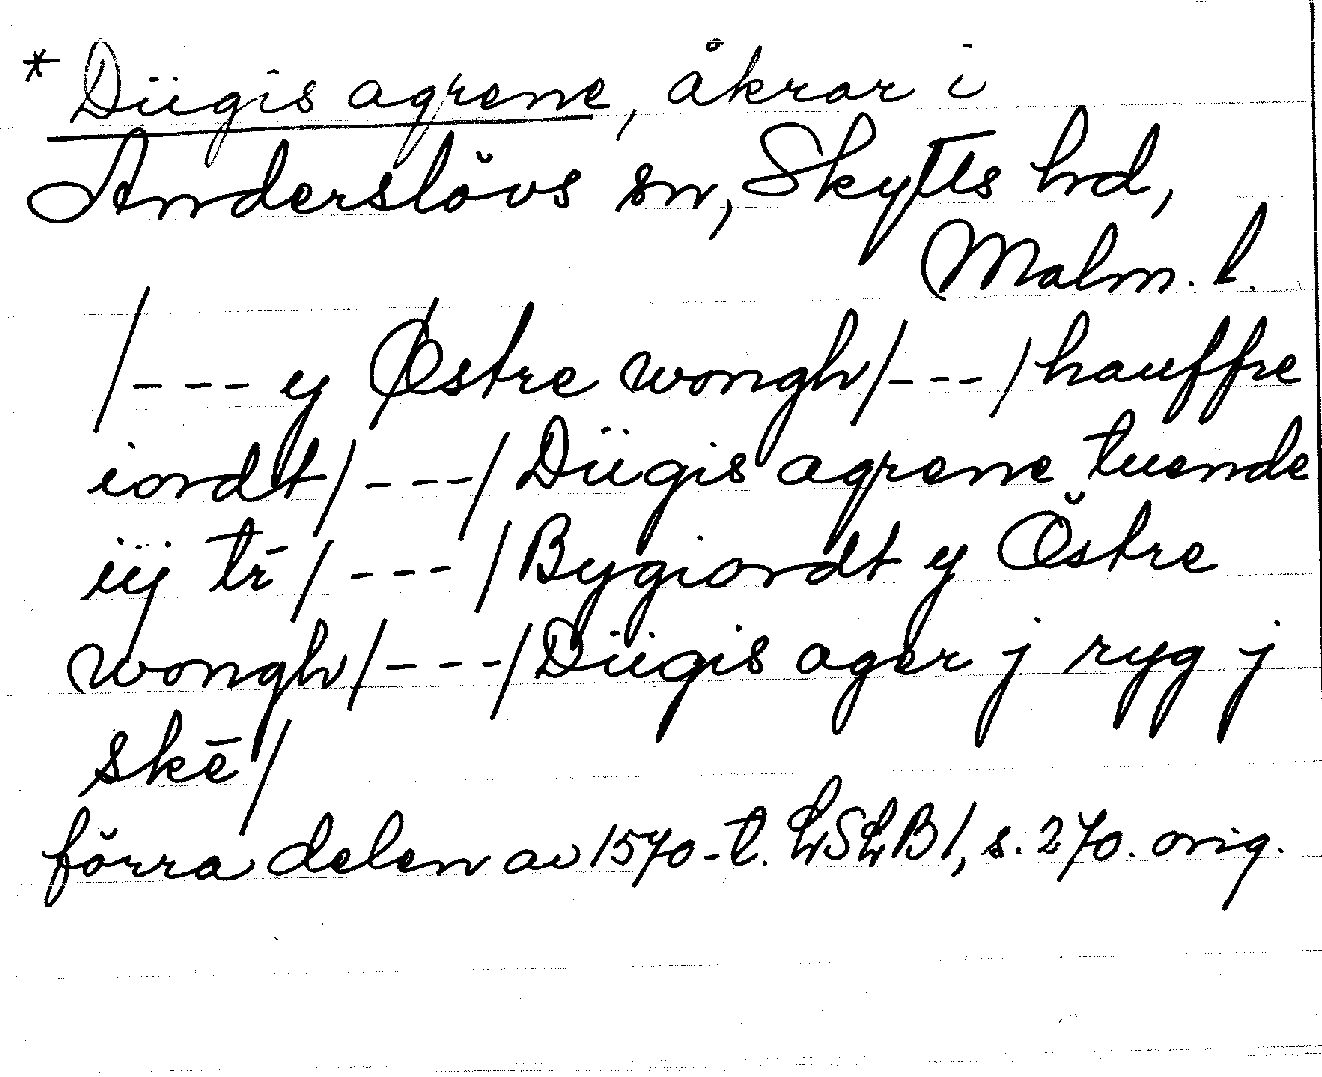 * Dügis agrene, åkrar i
Anderslövs sn, Skytts hd,
Malm. l.
/--- y Østre wongh/---/hauffre
iordt/---/Dügis agrene tuende
iij tr̄/---/Bygiordt y Östre
wongh/---/Dügis ager j ryg j
skē/
förra delen av 1570-t. LSLB 1, s. 270. orig.